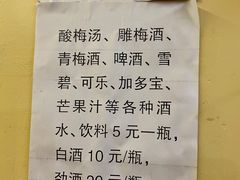 酸梅汤、雕梅酒、
青梅酒、啤酒、雪
碧、可乐、加多宝、
芒果汁等各种酒
水、饮料5元一瓶，
白酒10元/瓶，
劲酒20元/瓶